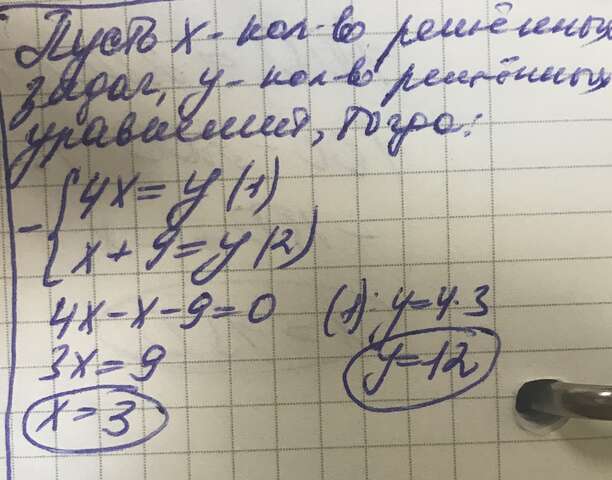 Пусть x - кол-во решённых
задач, y - кол-во решённых
уравнений, тогда:
4x = y (1)
x + 9 = y (2)
4x - x - 9 = 0
3x = 9
x = 3
(1): y = 4·3
y = 12